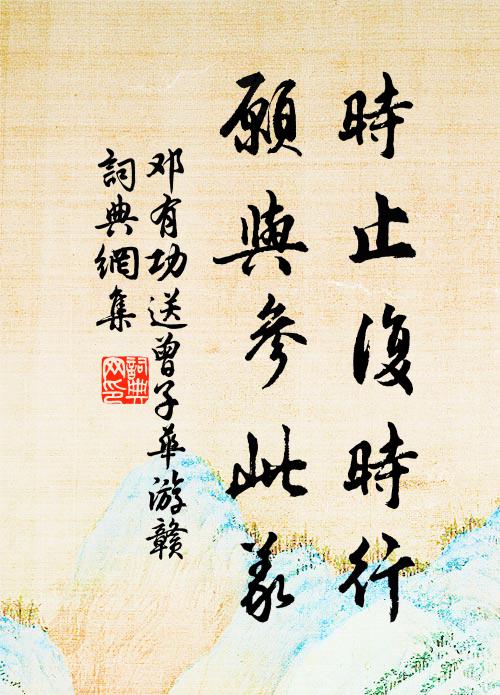 時止復時行
願與參此義
邓有功送曾子華游贛
詞典網集
詞典網印